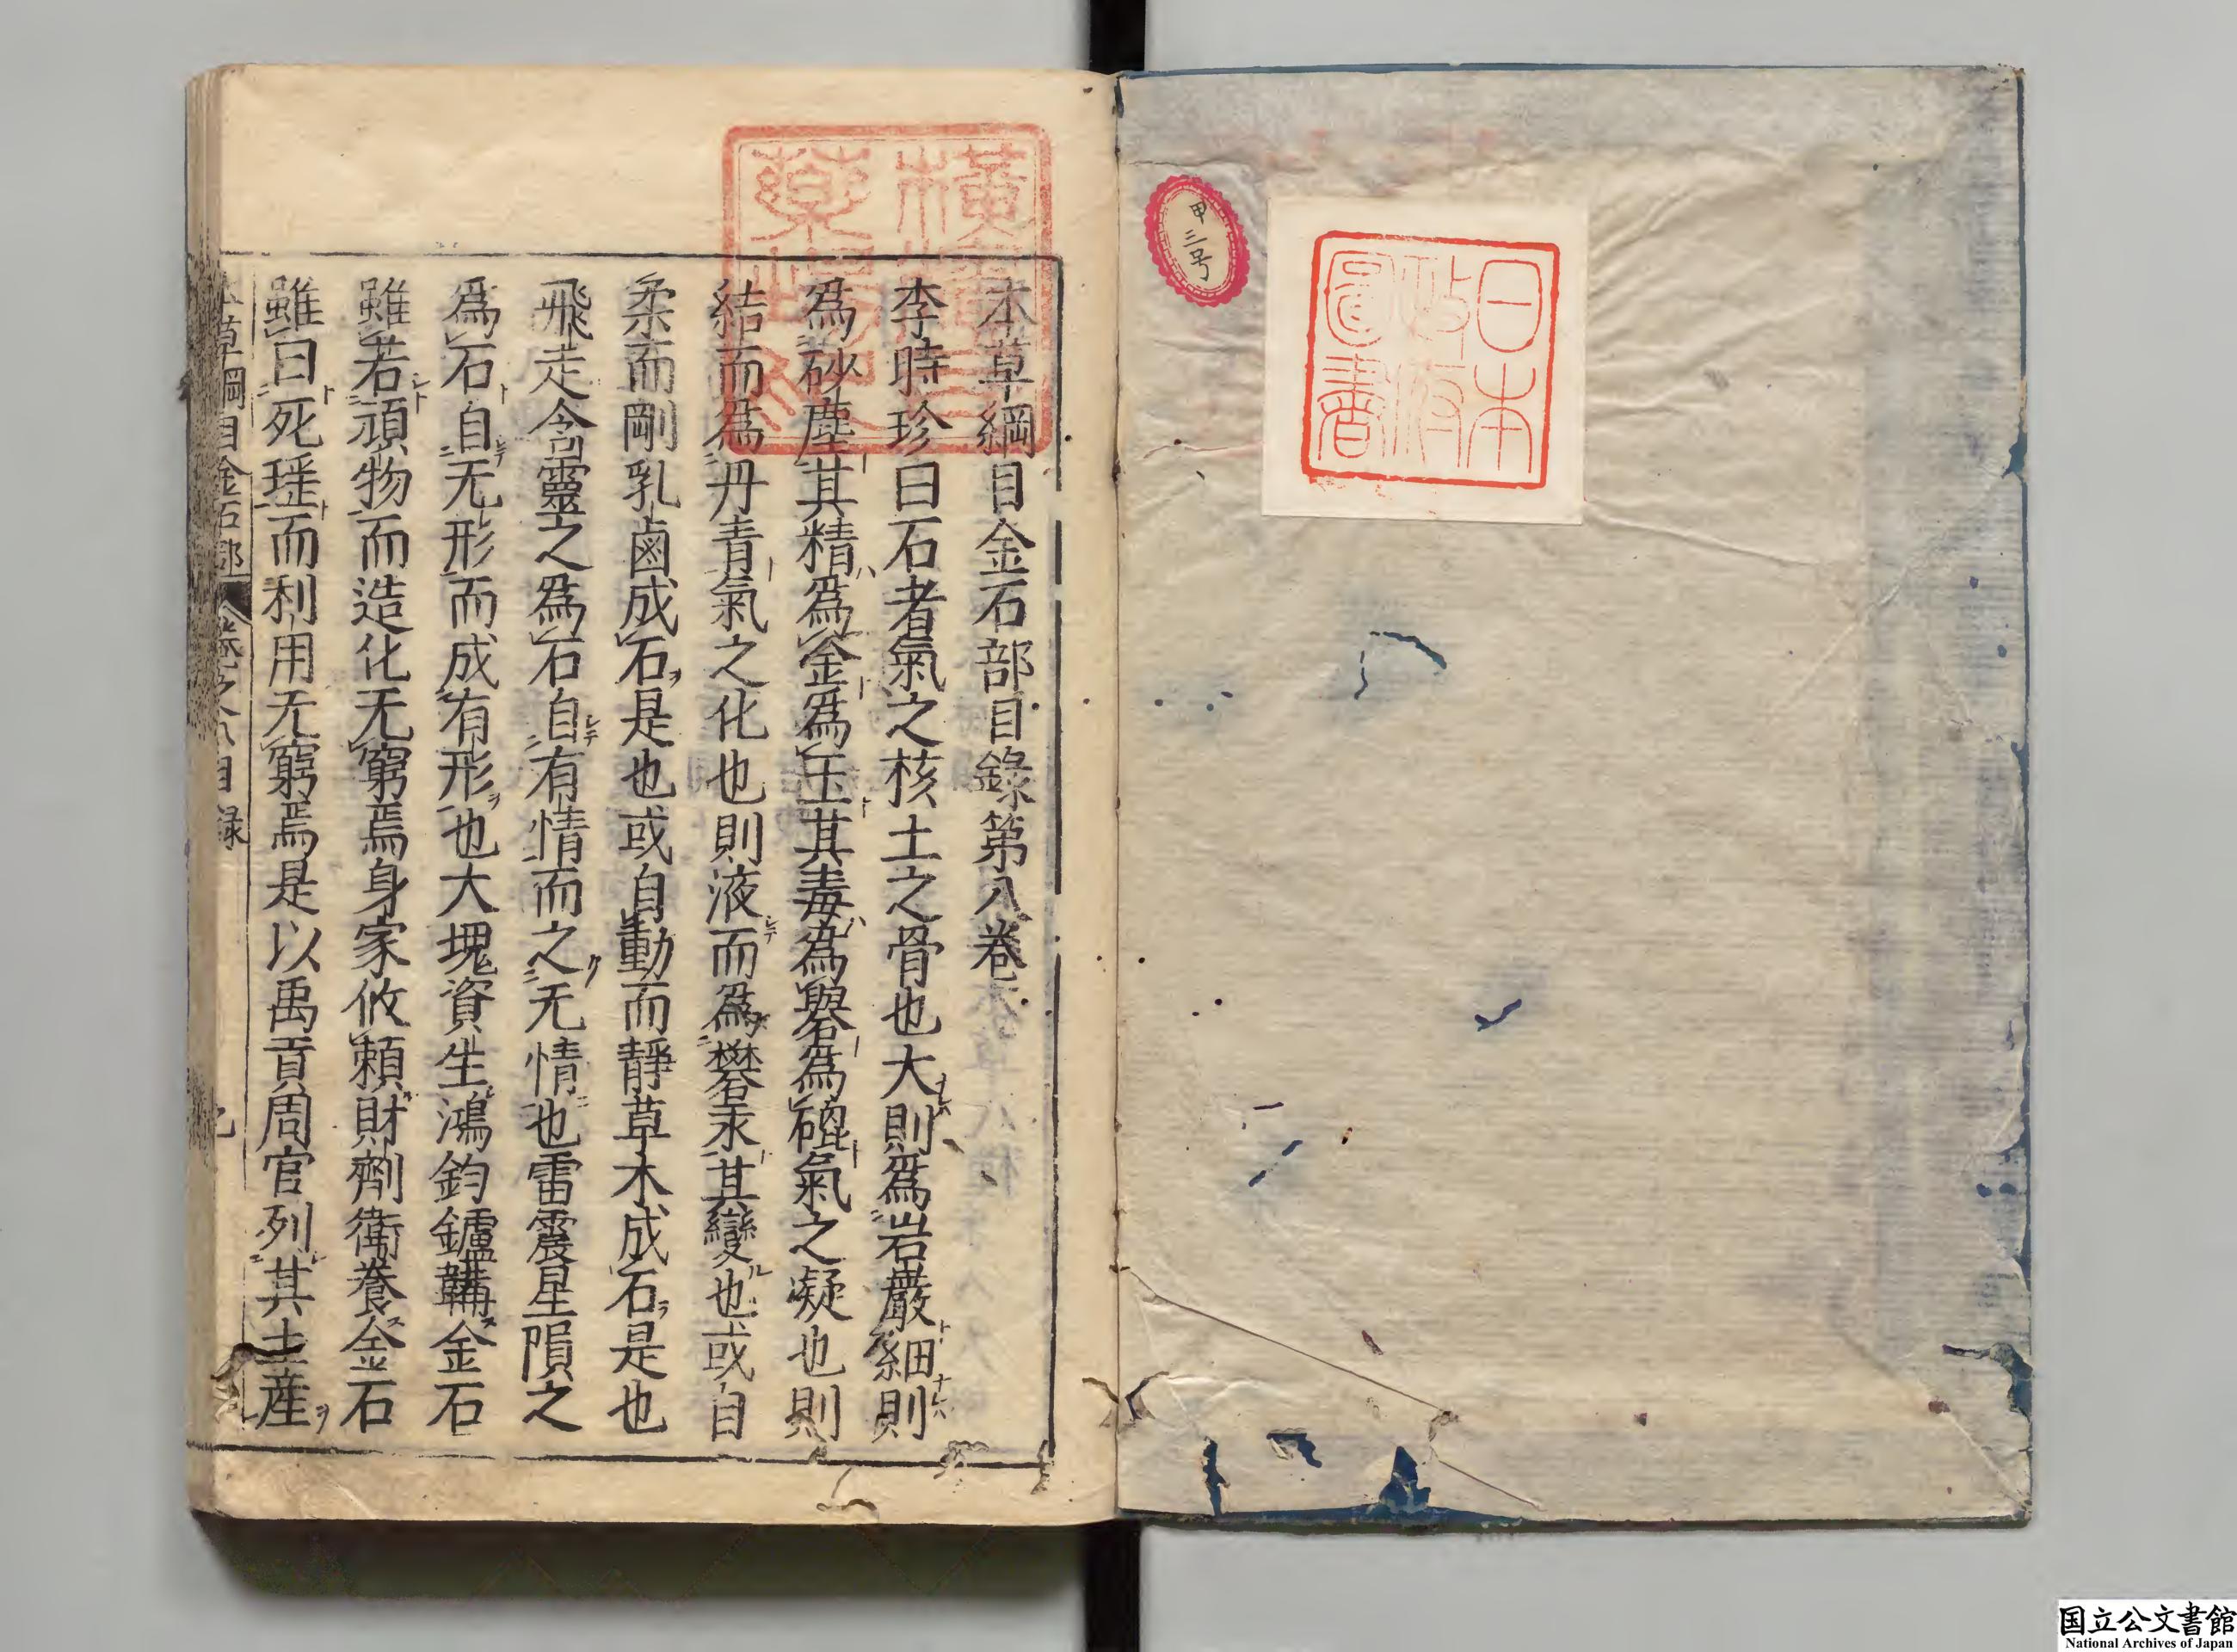 甲
三
号
日本
政府
圖書
本草綱目金石部目錄第八卷
李時珍曰石者氣之核土之骨也大則爲岩巖細則
爲砂塵其精爲金爲玉其毒爲礜爲磇氣之凝也則
結而爲丹青氣之化也則液而爲礬汞其變也或自
柔而剛乳鹵成石是也或自動而靜草木成石是也
飛走含靈之爲石自有情而之无情也雷震星隕之
爲石自无形而成有形也大塊資生鴻鈞鑪鞴金石
雖若頑物而造化无窮焉身家攸賴財劑衛養金石
雖曰死瑶而利用无窮焉是以禹貢周官列其土産
本草綱目金石部 卷之八目録
国立公文書館
National Archives of Japan